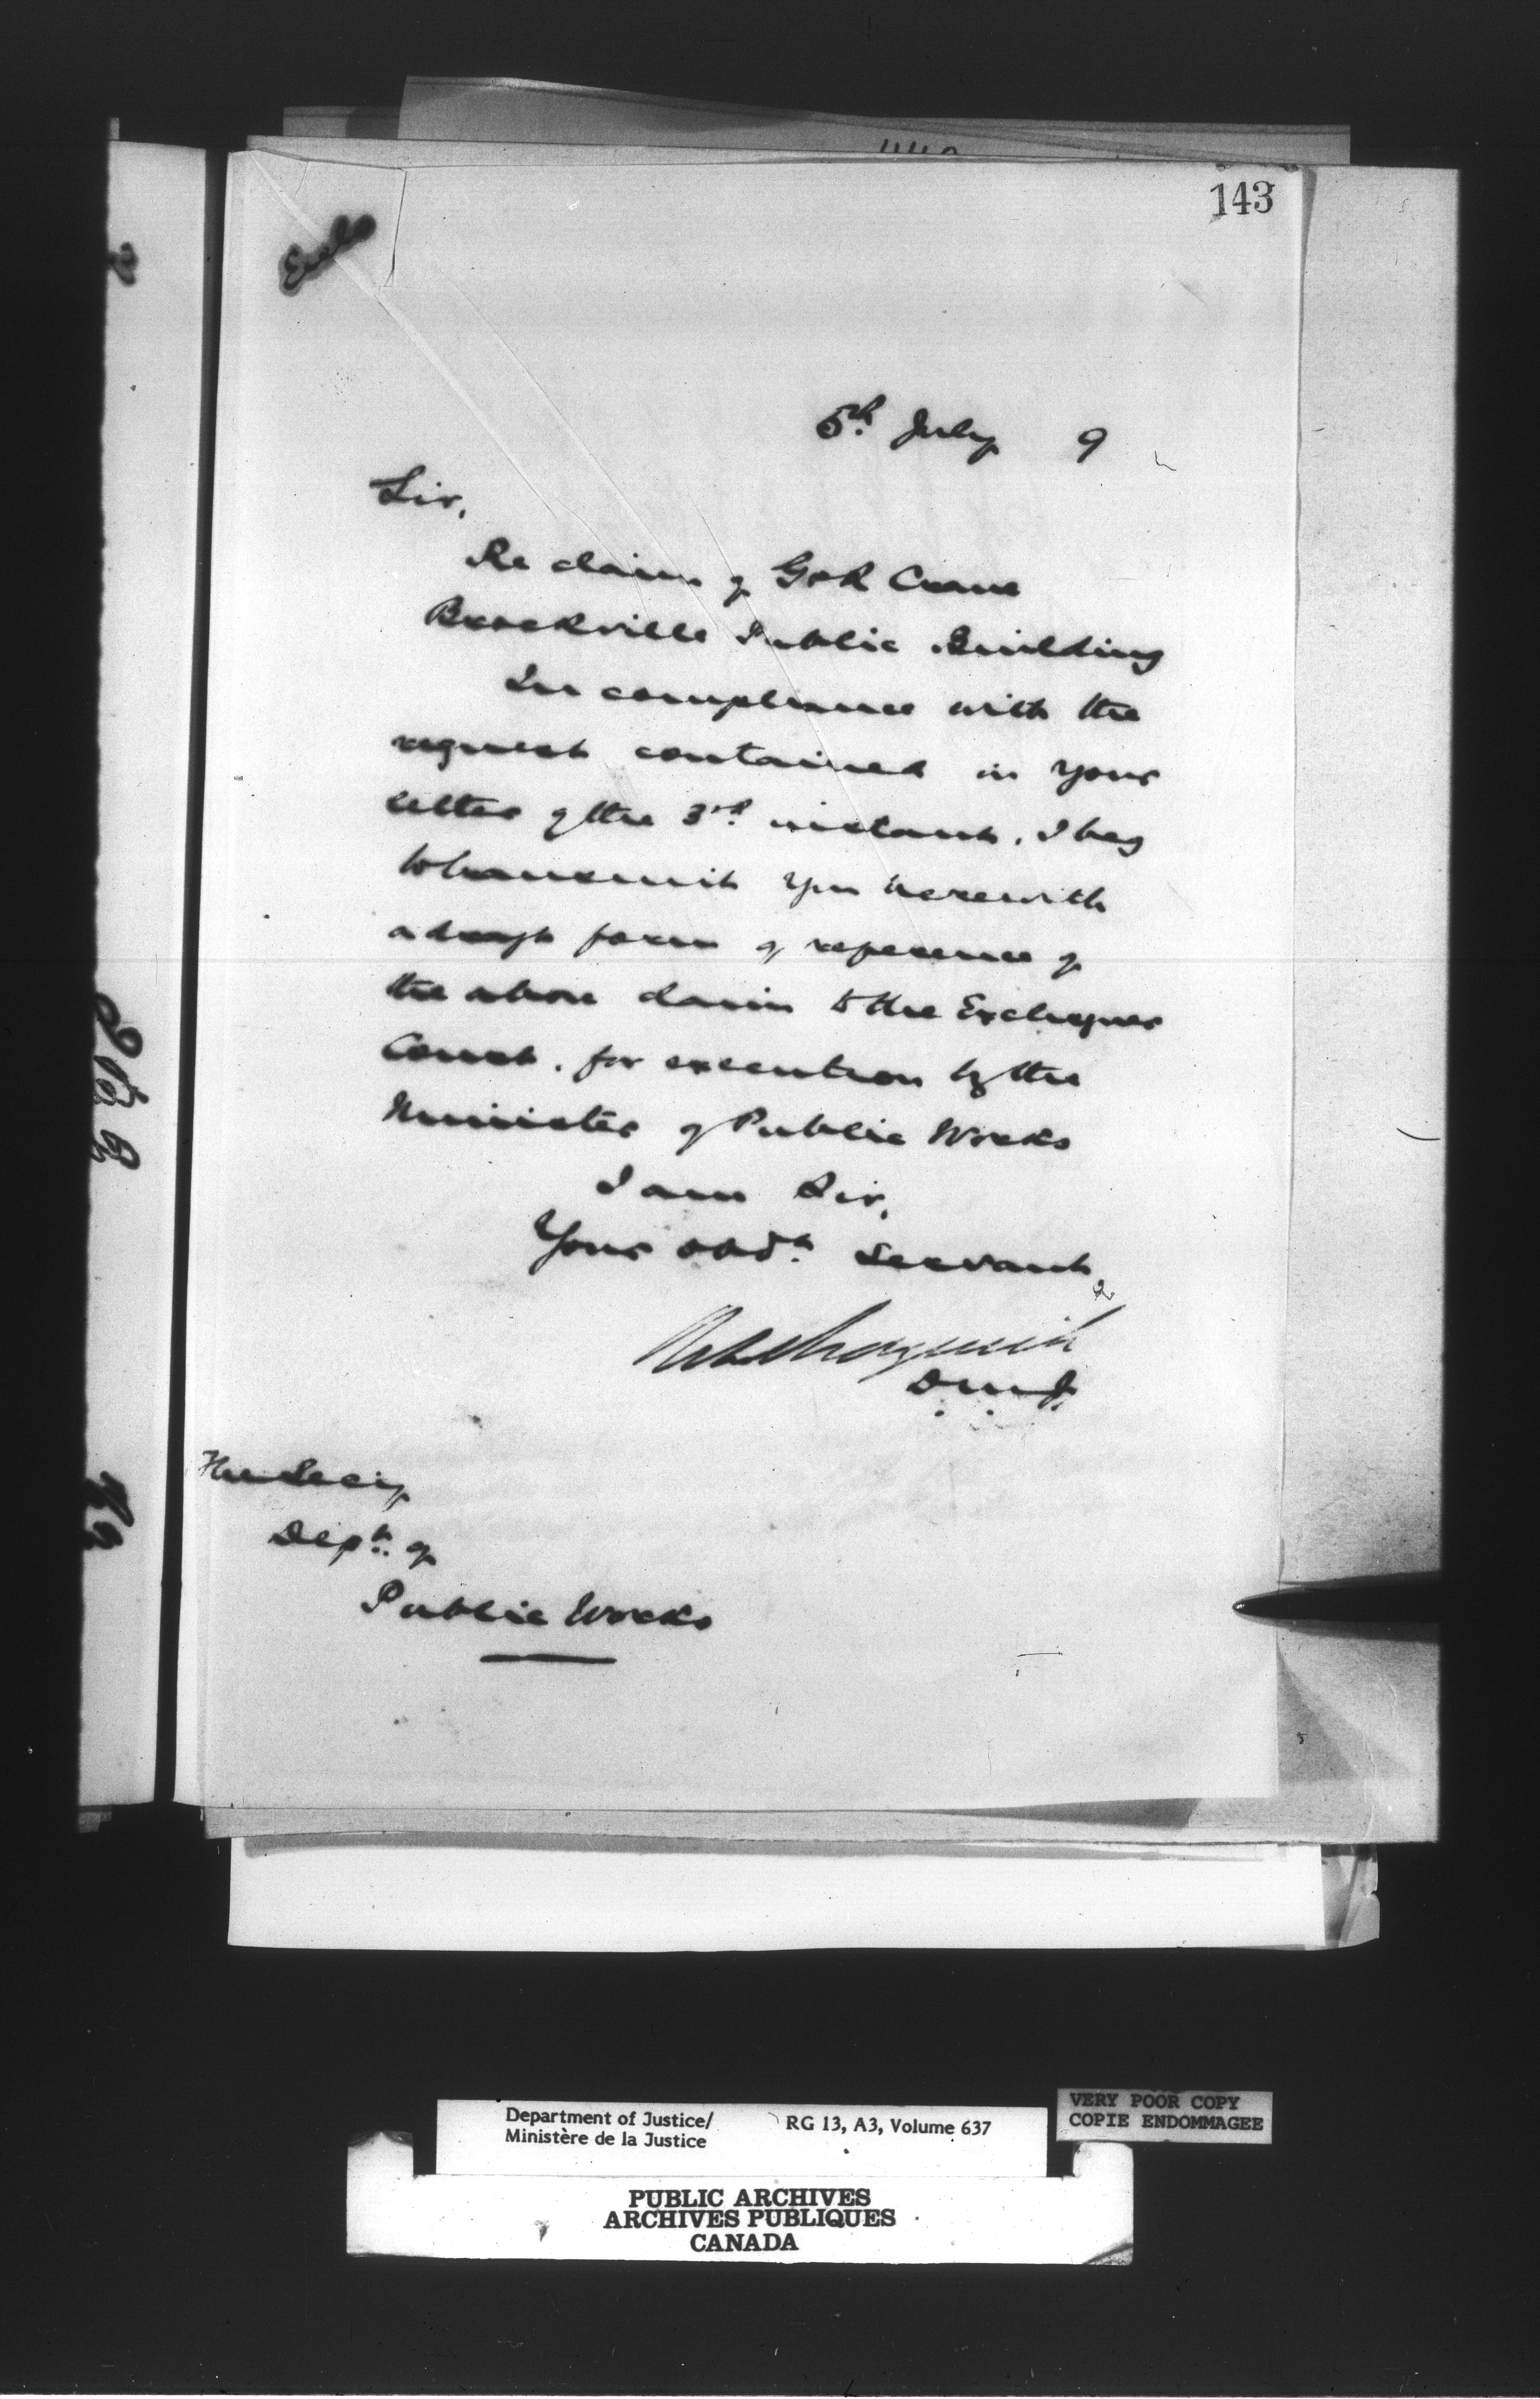 143
5th. July 9
Sir,
Re claim of G & R Crane
Brockville Public Building
In compliance with the
request contained in your
letter of the 3rd. instant, I beg
to transmit you herewith
a draft form of reference of
the above claim to the Exchequer
Court, for execution by the
Minister of Public Works
I am Sir,
Your obdt. Servant,
D.M.J.
The Secy
Dept. of
Public Works
Department of Justice/
Ministère de la Justice
RG 13, A3, Volume 637
VERY POOR COPY
COPIE ENDOMMAGEE
PUBLIC ARCHIVES
ARCHIVES PUBLIQUES
CANADA